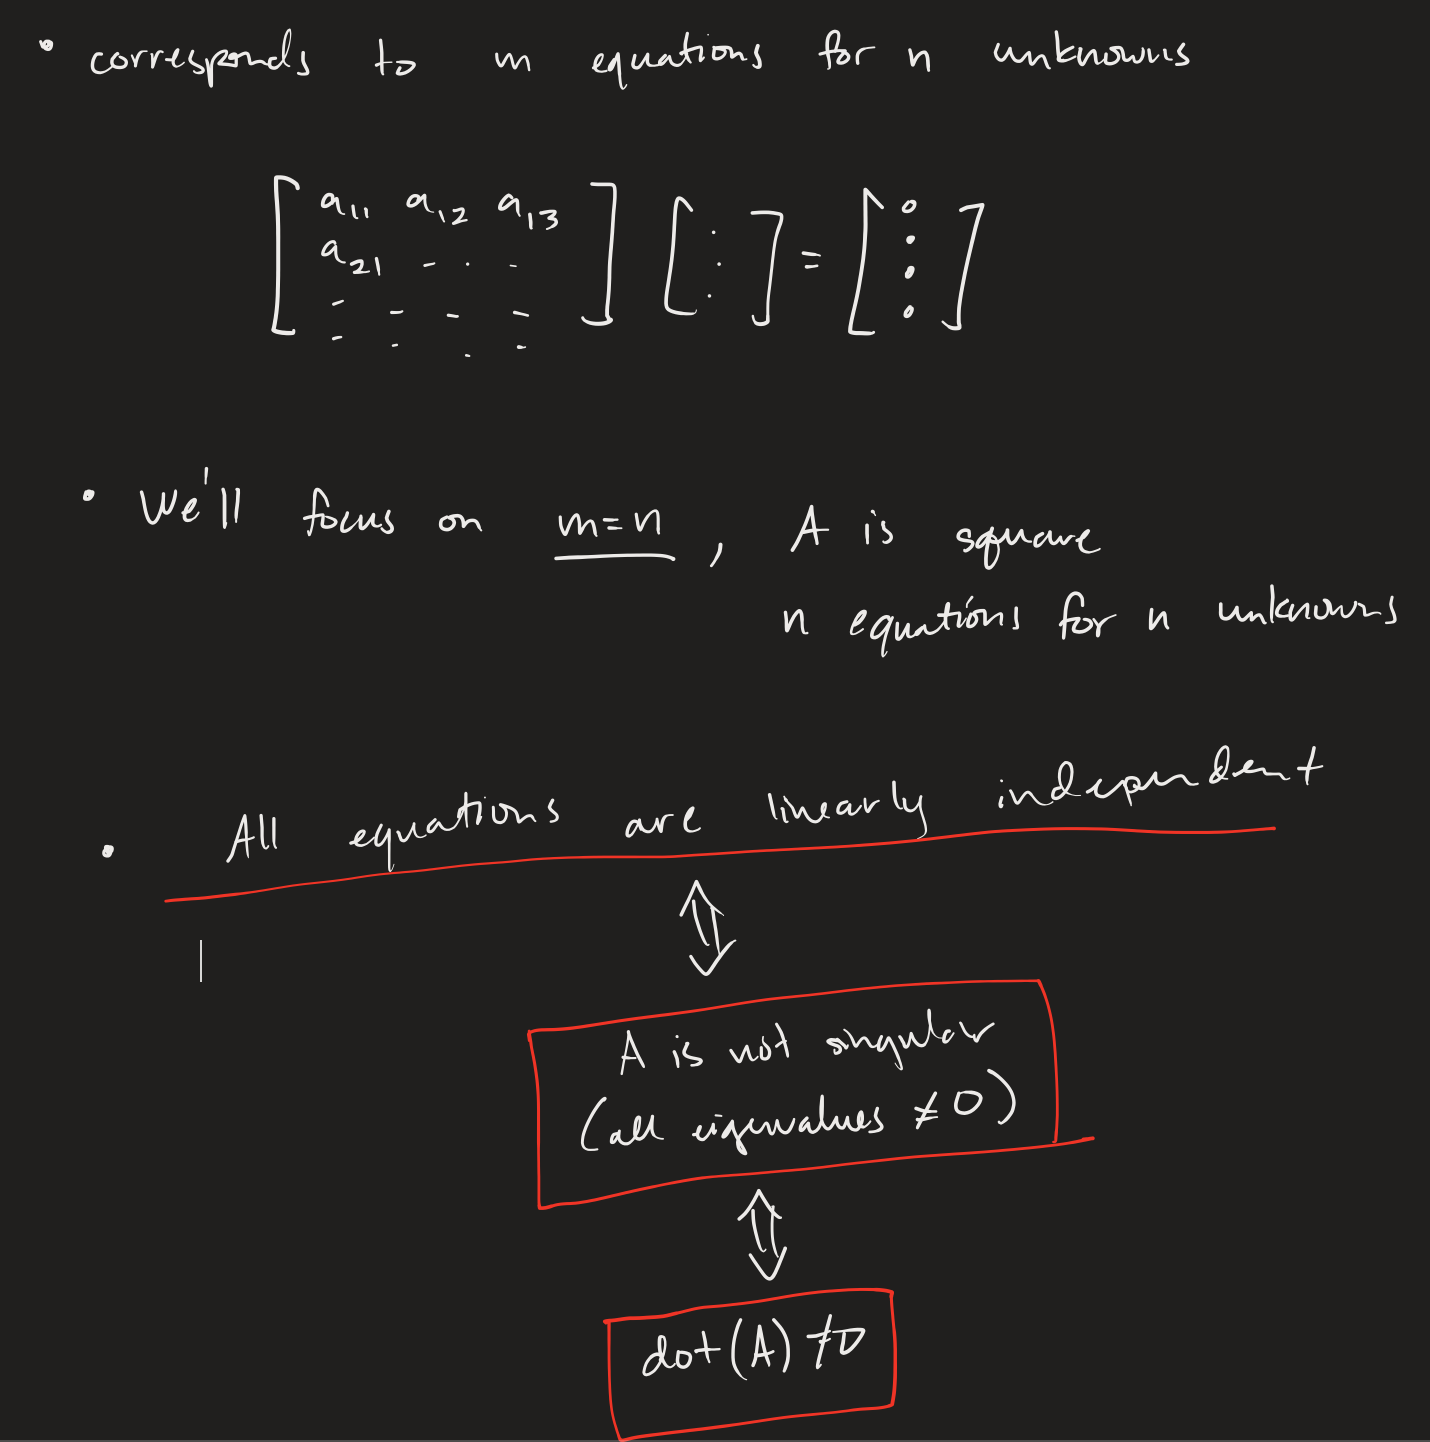 • corresponds to m equations for n unknowns
[ a11 a12 a13 ] [ . ] = [ o ]
a21 - . -
• We'll focus on m=n , A is square
n equations for n unknowns
• All equations are linearly independent
⇕
A is not singular
(all eigenvalues ≠ 0)
⇕
dot(A) ≠ 0